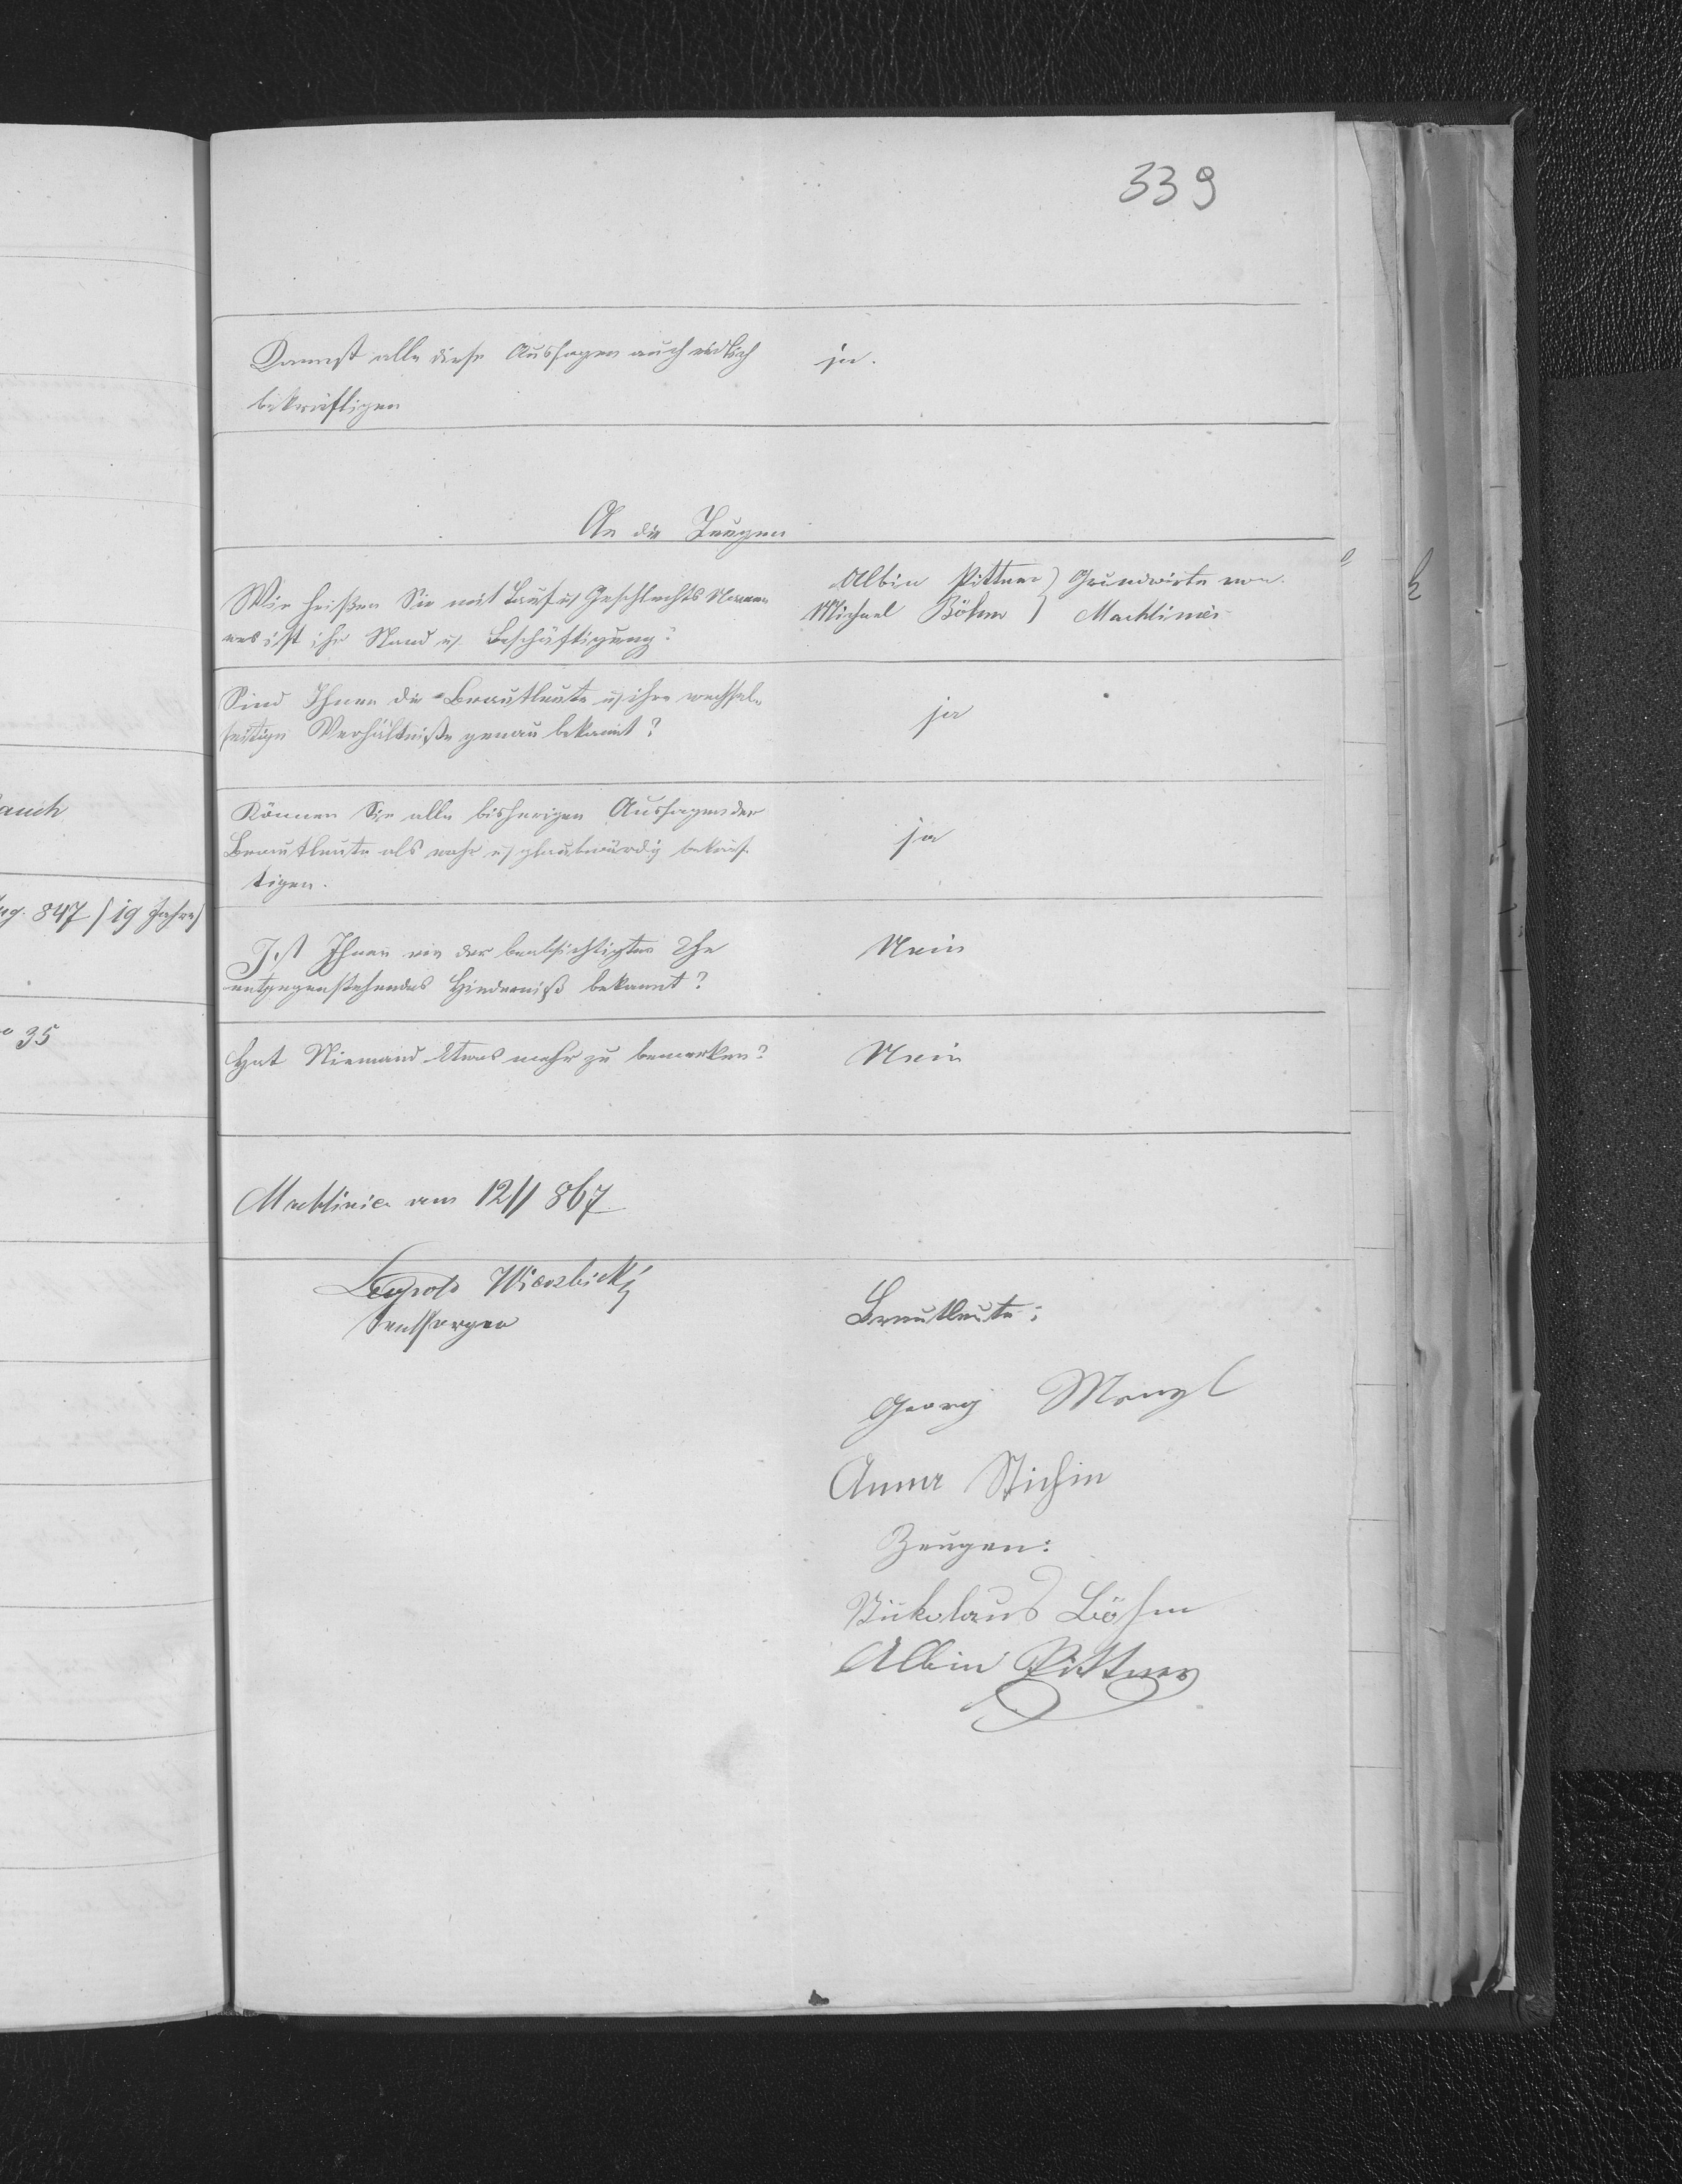 339
Kannst alle diese Aussagen auch eidlich
bekräftigen
ja.
An die Zeugen
Wie heißen Sie mit Tauf u. Geschlechts Namen
was ist ihr Stand u. Beschäftigung?
Albin Pittner } Grundwirte von
Michael Böhm }
Sind Ihnen die Brautleute u. ihre wechsel-
seitigen Verhältniße genau bekannt?
ja
Können Sie alle bisherigen Aussagen der
Brautleute als wahr u. glaubwürdig bekräf-
tigen.
ja
Ist Ihnen ein der beabsichtigten Ehe
entgegenstehendes Hinderniß bekannt?
Nein
Hat Niemand Etwas mehr zu bemerken?
Nein
am 12/1 867
Leopold
Seelsorger
Brautleute:
Georg
Anna Stichin
Zeugen:
Nikolaus Böhm
Albin Pittner
auch
847 / 19 Jahre/
35